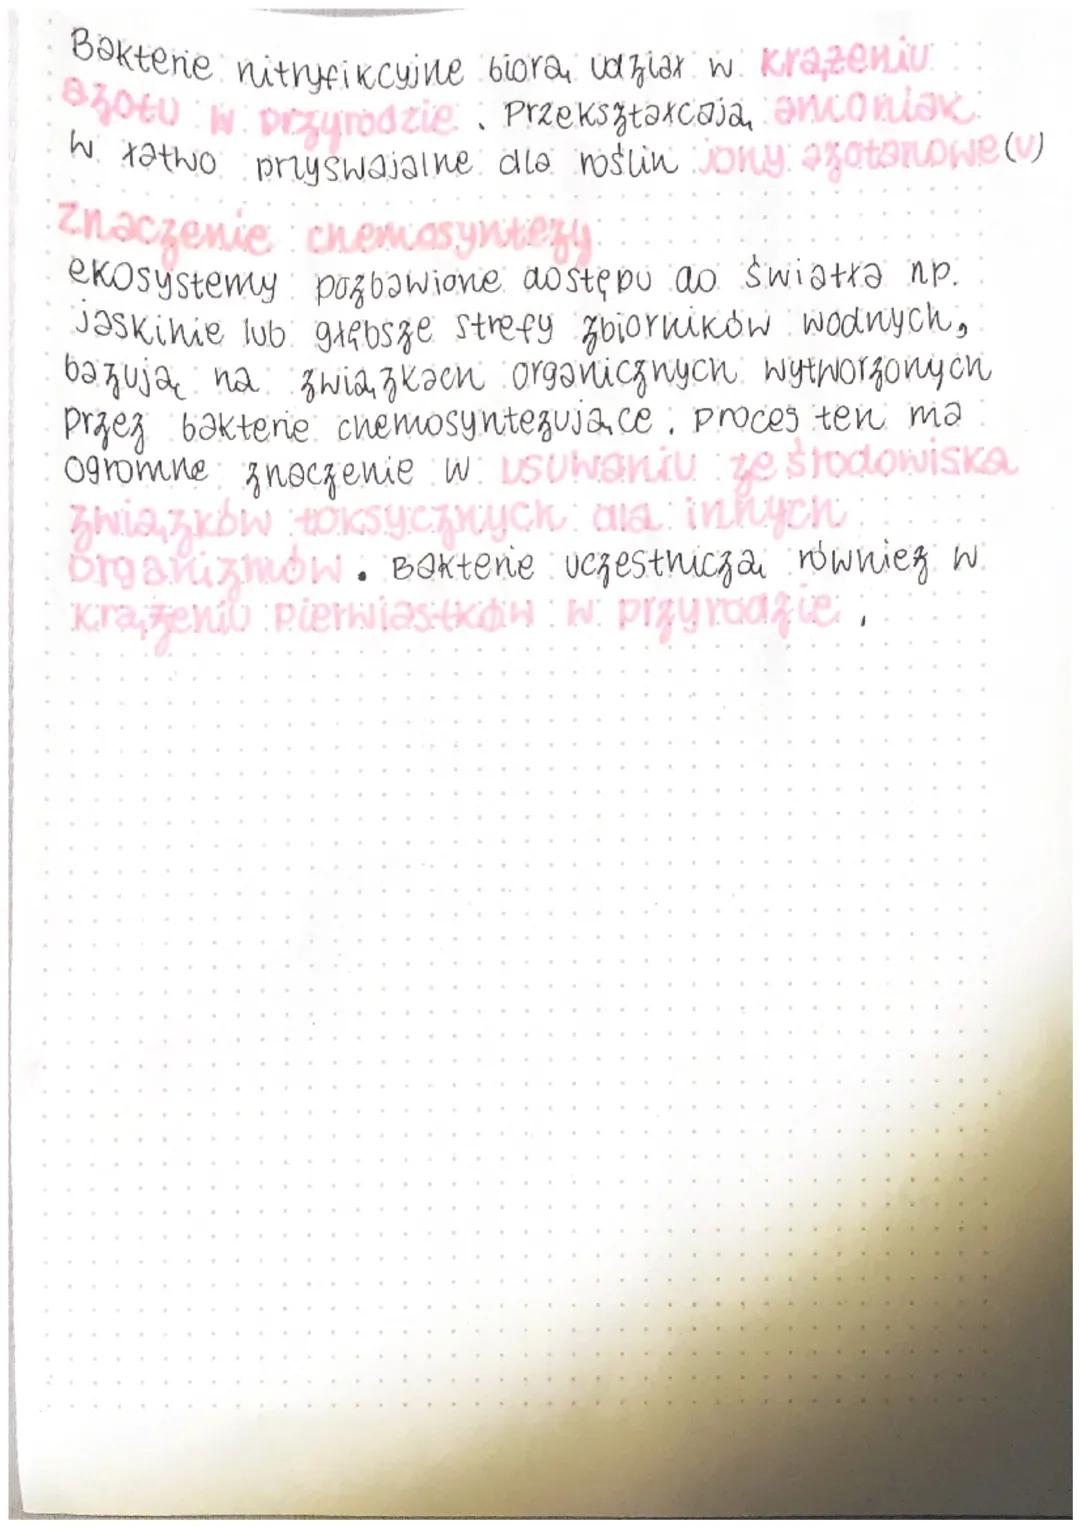 Bakterie nitryfikcyjne biorą udział w krążeniu
azotu w przyrodzie. Przekształcają amoniak
w łatwo przyswajalne dla roślin jony azotanowe (v)
Znaczenie chemosyntezy
ekosystemy pozbawione dostępu do światła np.
jaskinie lub głębsze strefy zbiorników wodnych,
bazują na związkach organicznych wytworzonych
przez bakterie chemosyntezujące. proces ten ma
ogromne znaczenie w usuwaniu ze środowiska
związków toksycznych dla innych
organizmów. Bakterie uczestniczą również w
krążeniu pierwiastków w przyrodzie.